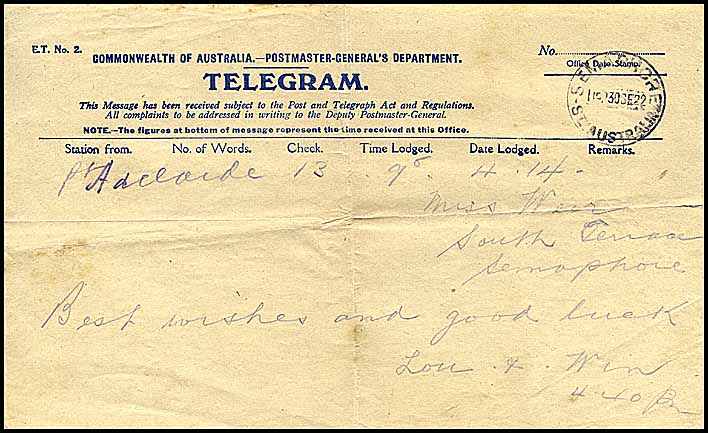 E.T. No. 2.
COMMONWEALTH OF AUSTRALIA.—POSTMASTER-GENERAL'S DEPARTMENT.
No.
Office Date Stamp.
TELEGRAM.
SEMAPHORE
30SE22
STH AUSTRALIA
This Message has been received subject to the Post and Telegraph Act and Regulations.
All complaints to be addressed in writing to the Deputy Postmaster-General.
NOTE.—The figures at bottom of message represent the time received at this Office.
Station from. No. of Words. Check. Time Lodged. Date Lodged. Remarks.
Adelaide 13 4.14
Miss Weir
South Terrace
Semaphore
Best wishes and good luck
Lou & Win
4.40